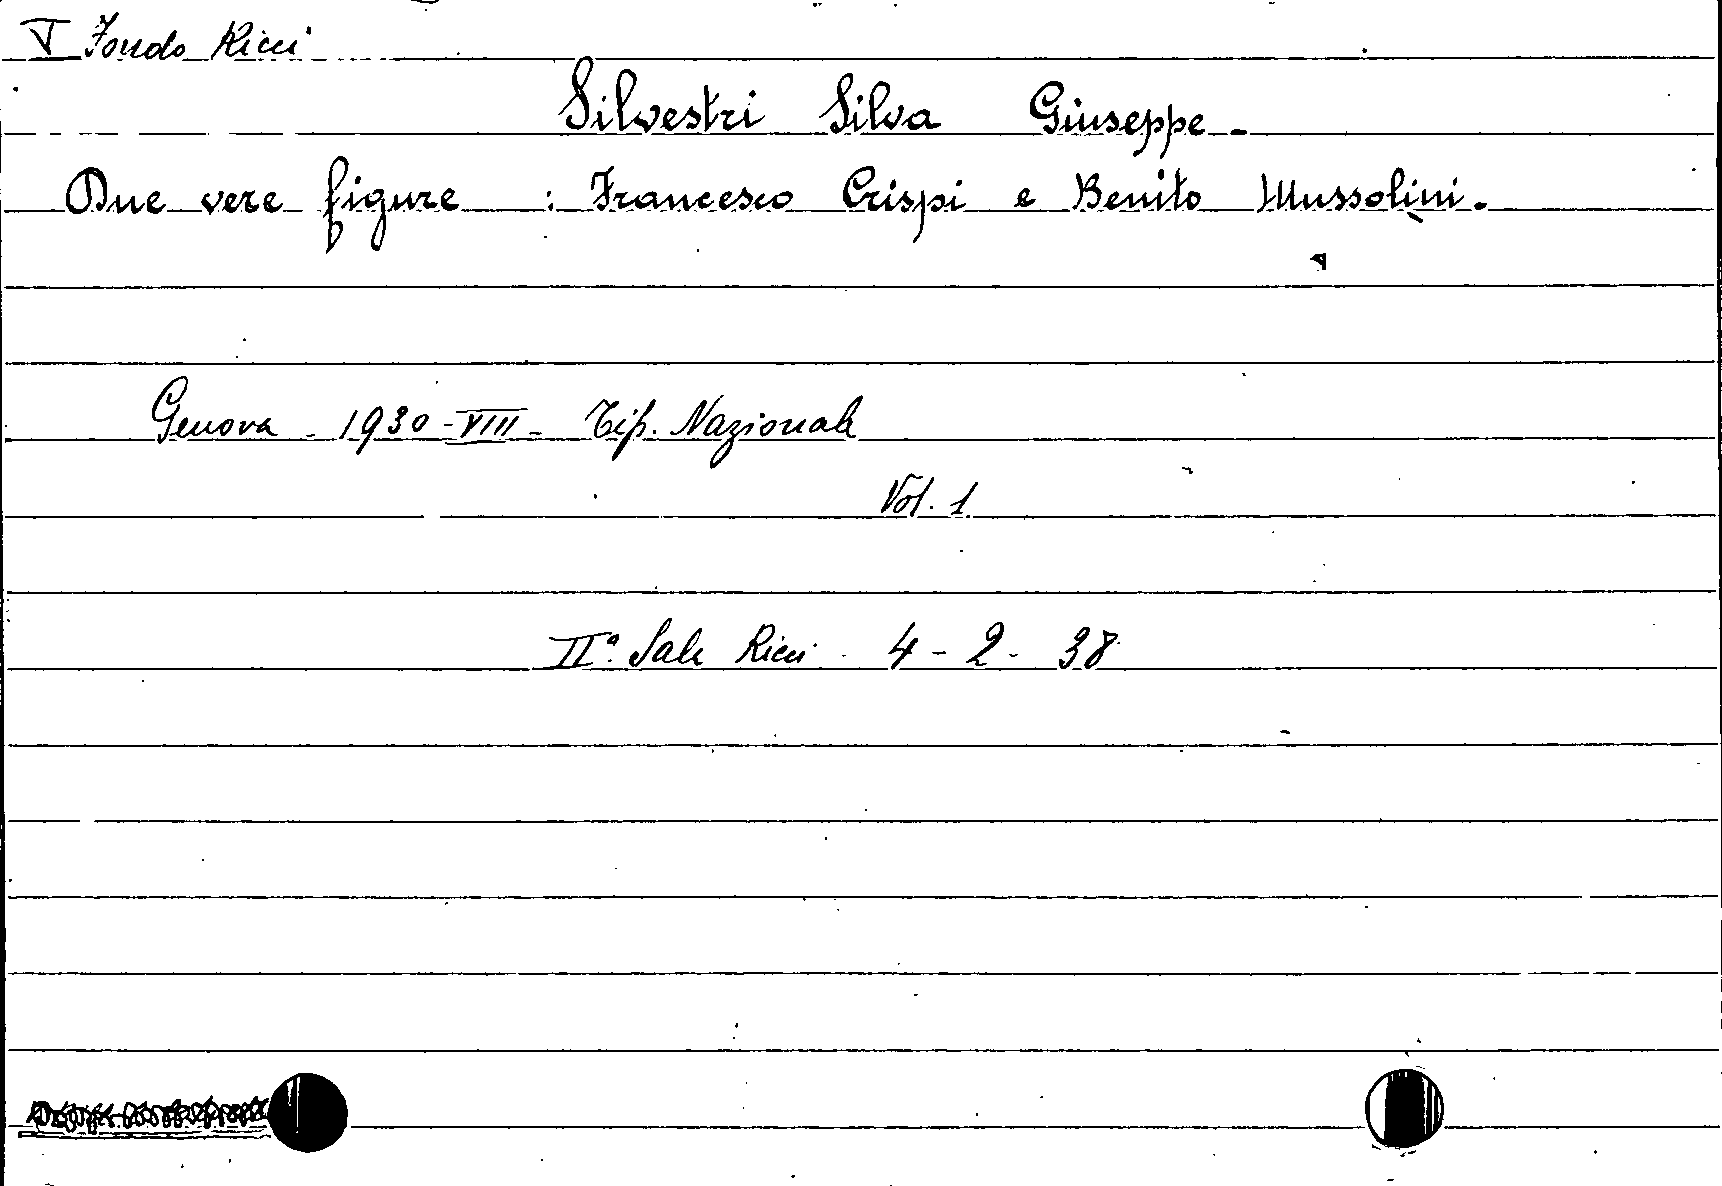 V Fondo Ricci
Silvestri Silva Giuseppe -
Due vere figure : Francesco Crispi e Benito Mussolini.
Genova - 1930 - VIII - Tip. Nazionale
Vol. 1
IIª Sala Ricci 4 - 2 - 38